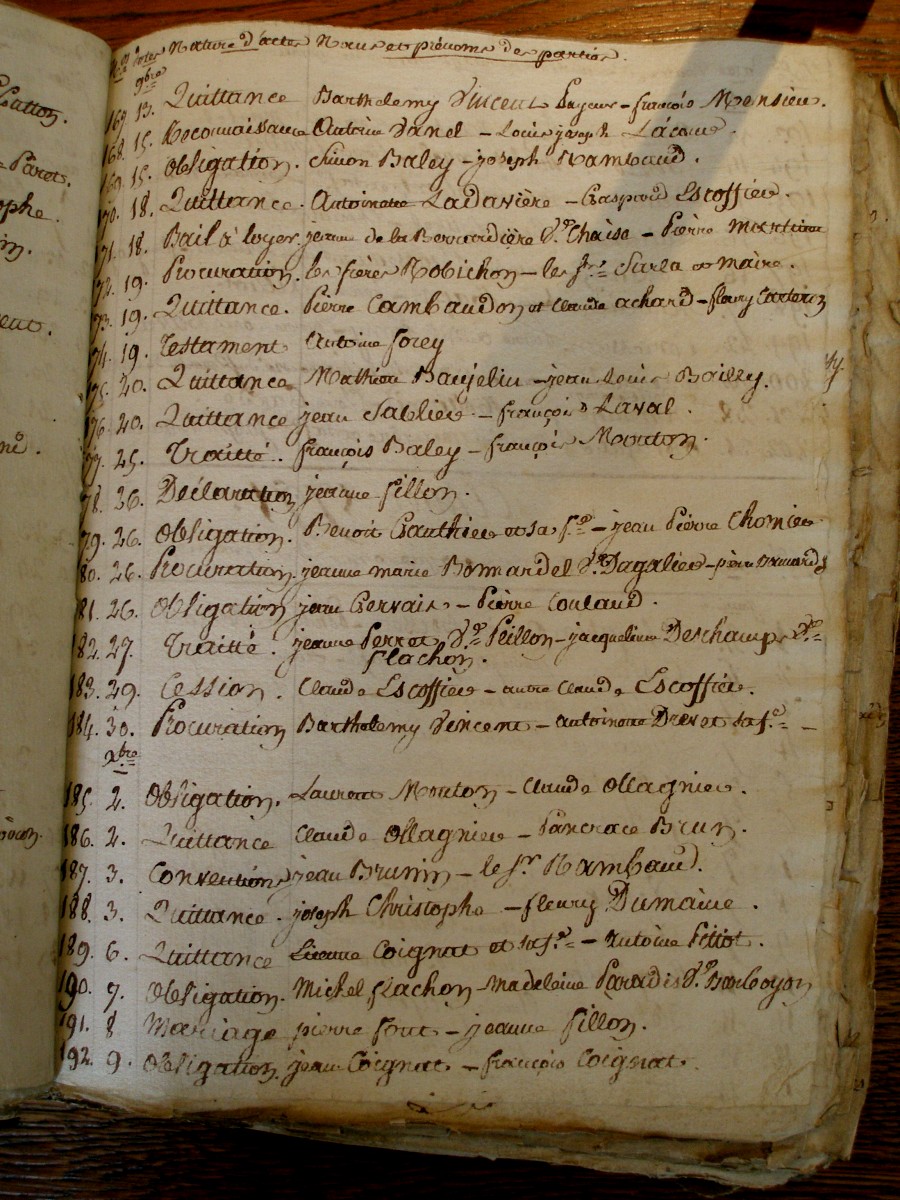 Nature d'actes Noms et prénoms des parties.
9bre
167 13. Quittance Barthelemy Vincent françois Mensieu.
168. 15. Reconnaissance Antoine Vanel – Louis joseph Lacour.
169. 15. Obligation. Simon Baley – joseph Rambaud.
170. 18. Quittance. Antoinette Ladavière – Gaspard Escoffier.
171. 18. Bail à loyer. jeanne de la Bernardière Ve Chaise – Pierre
172. 19. Procuration. les frères Robichon – les frs Sarla et Maire.
173. 19. Quittance. Pierre Cambaudon et Claude achard – fleury
174. 19. Testament Antoine forey
175. 20. Quittance Mathieu Baujelin – jean Louis Bailly.
176. 20. Quittance jean Sablier – françois Laval.
177. 25. Traitté. françois Baley – françois Mouton.
178. 26. Déclaration jeanne fillon.
179. 26. Obligation. Benoit Gauthier et sa fe – jean Pierre Chomier
180. 26. Procuration jeanne marie Bonnardel Ve Dagalier –
181. 26. Obligation jean Gervais – Pierre Coulaud.
182. 27. Traitté. jeanne Perret Ve Peillon – jacqueline Deschamps Ve
flachon.
183. 29. Cession. Claude Escoffier – autre Claude Escoffier.
184. 30. Procuration Barthelemy Vincent – Antoinette Drevet sa fe –
Xbre
185 2. Obligation. Laurent Mouton – Claude Ollagnier.
186. 2. Quittance Claude Ollagnier – Pancrace Brun.
187. 3. Convention jean Brunin – le sr Rambaud.
188. 3. Quittance. joseph Christophe – fleury Dumaine.
189. 6. Quittance Etienne Coignat et sa fe – Antoine Pitiot.
190. 7. Obligation. Michel flachon – Madeleine Paradis Ve
191. 8 Mariage pierre font – jeanne fillon.
192. 9. Obligation. jean Coignat – françois Coignat.